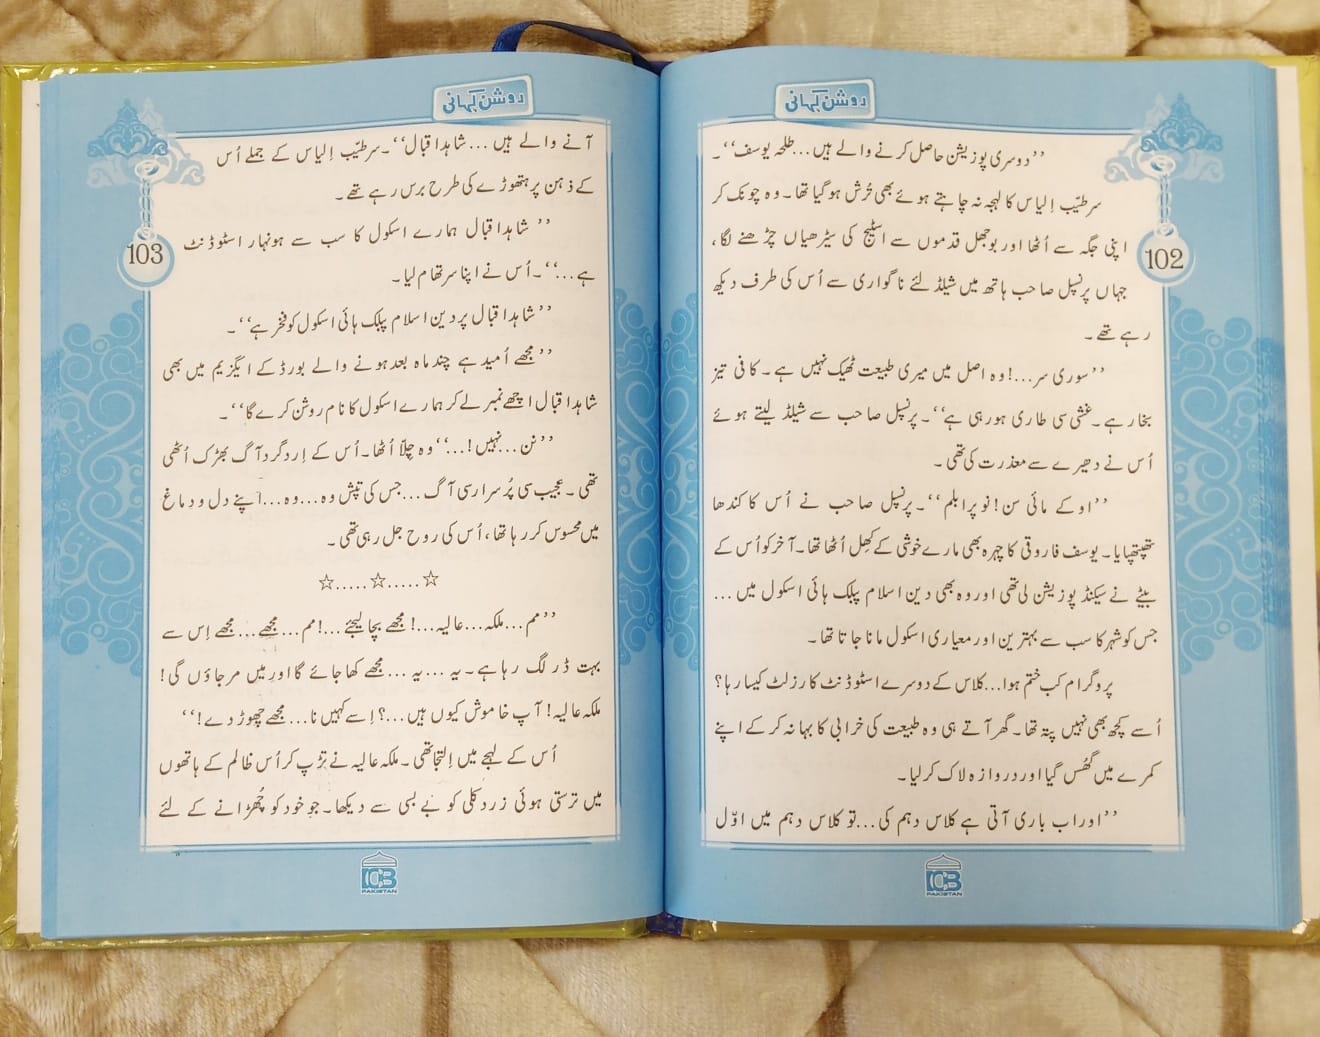 روشن کہانی
102
’’دوسری پوزیشن حاصل کرنے والے ہیں...طلحہ یوسف‘‘۔
سر طیّب اِلیاس کا لہجہ نہ چاہتے ہوئے بھی تُرش ہو گیا تھا۔ وہ چونک کر
اپنی جگہ سے اُٹھا اور بوجھل قدموں سے اسٹیج کی سیڑھیاں چڑھنے لگا،
جہاں پرنسپل صاحب ہاتھ میں شیلڈ لئے ناگواری سے اُس کی طرف دیکھ
رہے تھے۔
’’سوری سر...!وہ اصل میں میری طبیعت ٹھیک نہیں ہے۔ کافی تیز
بخار ہے۔ غشی سی طاری ہو رہی ہے‘‘۔ پرنسپل صاحب سے شیلڈ لیتے ہوئے
اُس نے دھیرے سے معذرت کی تھی۔
’’اوکے مائی سن! نو پرابلم‘‘۔ پرنسپل صاحب نے اُس کا کندھا
تھپتھپایا۔ یوسف فاروقی کا چہرہ بھی مارے خوشی کے کھِل اُٹھا تھا۔ آخر کو اُس کے
بیٹے نے سیکنڈ پوزیشن لی تھی اور وہ بھی دین اسلام پبلک ہائی اسکول میں ...
جس کو شہر کا سب سے بہترین اور معیاری اسکول مانا جاتا تھا۔
پروگرام کب ختم ہوا...کلاس کے دوسرے اسٹوڈنٹ کا رزلٹ کیسا رہا؟
اُسے کچھ بھی نہیں پتہ تھا۔ گھر آتے ہی وہ طبیعت کی خرابی کا بہانہ کر کے اپنے
کمرے میں گھُس گیا اور دروازہ لاک کر لیا۔
’’اور اب باری آتی ہے کلاس دہم کی...تو کلاس دہم میں اوّل
PAKISTAN
روشن کہانی
103
آنے والے ہیں ...شاہد اقبال‘‘۔سر طیّب اِلیاس کے جملے اُس
کے ذہن پر ہتھوڑے کی طرح برس رہے تھے۔
’’شاہد اقبال ہمارے اسکول کا سب سے ہونہار اسٹوڈنٹ
ہے...‘‘۔اُس نے اپنا سر تھام لیا۔
’’شاہد اقبال پر دین اسلام پبلک ہائی اسکول کو فخر ہے‘‘۔
’’مجھے اُمید ہے چند ماہ بعد ہونے والے بورڈ کے ایگزیم میں بھی
شاہد اقبال اچھے نمبر لے کر ہمارے اسکول کا نام روشن کرے گا‘‘۔
’’نن...نہیں!...‘‘وہ چِلّا اُٹھا۔اُس کے اِردگرد آگ بھڑک اُٹھی
تھی۔ عجیب سی پُر اسرار سی آگ ...جس کی تپش وہ...وہ...اپنے دل و دماغ
میں محسوس کر رہا تھا، اُس کی روح جل رہی تھی۔
☆.....☆.....☆
’’مم...ملکہ...عالیہ...!مجھے بچا لیجئے...!مم...مجھے...مجھے اِس سے
بہت ڈر لگ رہا ہے۔ یہ...یہ...مجھے کھا جائے گا اور میں مر جاؤں گی!
ملکہ عالیہ! آپ خاموش کیوں ہیں...؟ اِسے کہیں نا...مجھے چھوڑ دے!‘‘
اُس کے لہجے میں اِلتجا تھی۔ ملکہ عالیہ نے تڑپ کر اُس ظالم کے ہاتھوں
میں ترستی ہوئی زرد کلی کو بے بسی سے دیکھا۔ جو خود کو چھُڑانے کے لئے
PAKISTAN